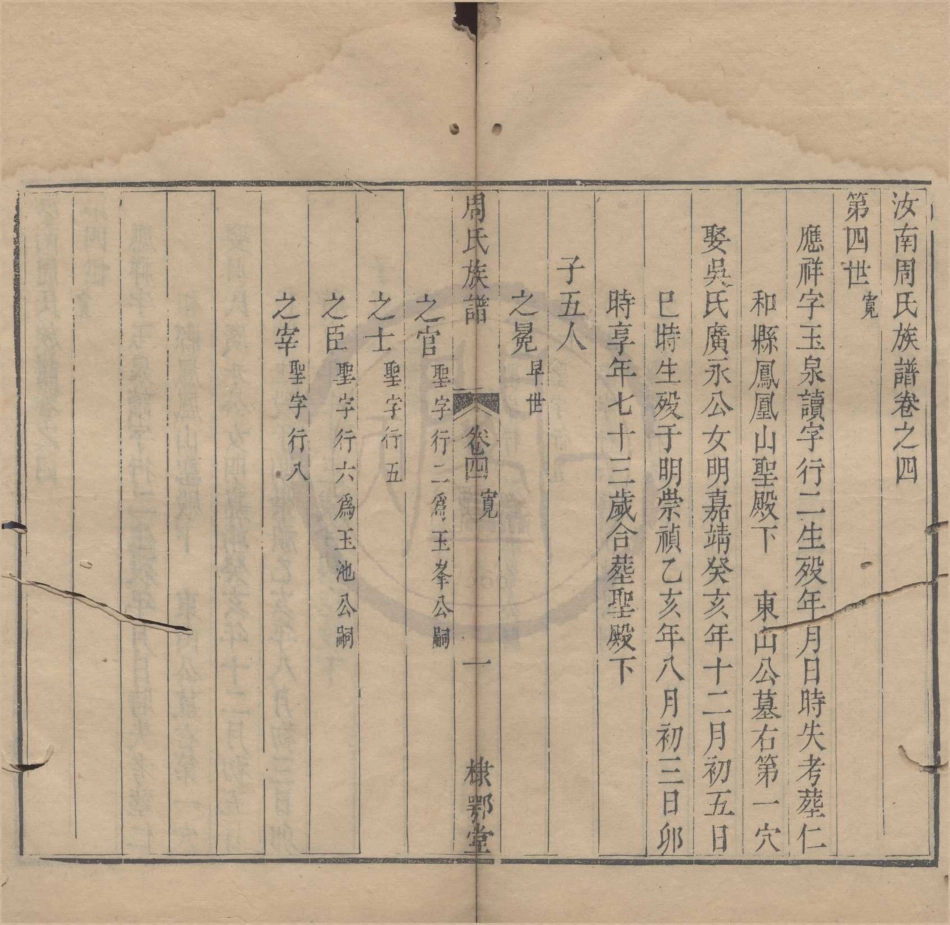 汝南周氏族譜卷之四
第四世寬
應祥字玉泉讀字行二生歿年月日時失考塟仁
和縣鳳凰山聖殿下 東山公墓右第一穴
娶吳氏廣永公女明嘉靖癸亥年十二月初五日
巳時生歿于明崇禎乙亥年八月初三日卯
時享年七十三歲合塟聖殿下
子五人
之冕早世
周氏族譜 卷四 寬 一 棣鄂堂
之官聖字行二爲玉峯公嗣
之士聖字行五
之臣聖字行六爲玉池公嗣
之宰聖字行八